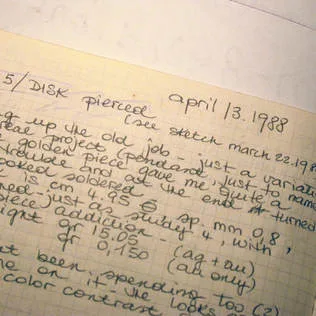 5/DISK pierced april 13.1988
(see sketch march 22.198
g up the old job - just a variati
real project (pendant just to name
e golden piece gave me quite a
soldered and at the end it turned
is cm 4.95 sp. mm 0,8,
piece just as study 4, with
ight addition -
gr 15.05 (ag + au)
gr 0,150 (au only)
t been spending too (2)
me on it - the looks
color contrast